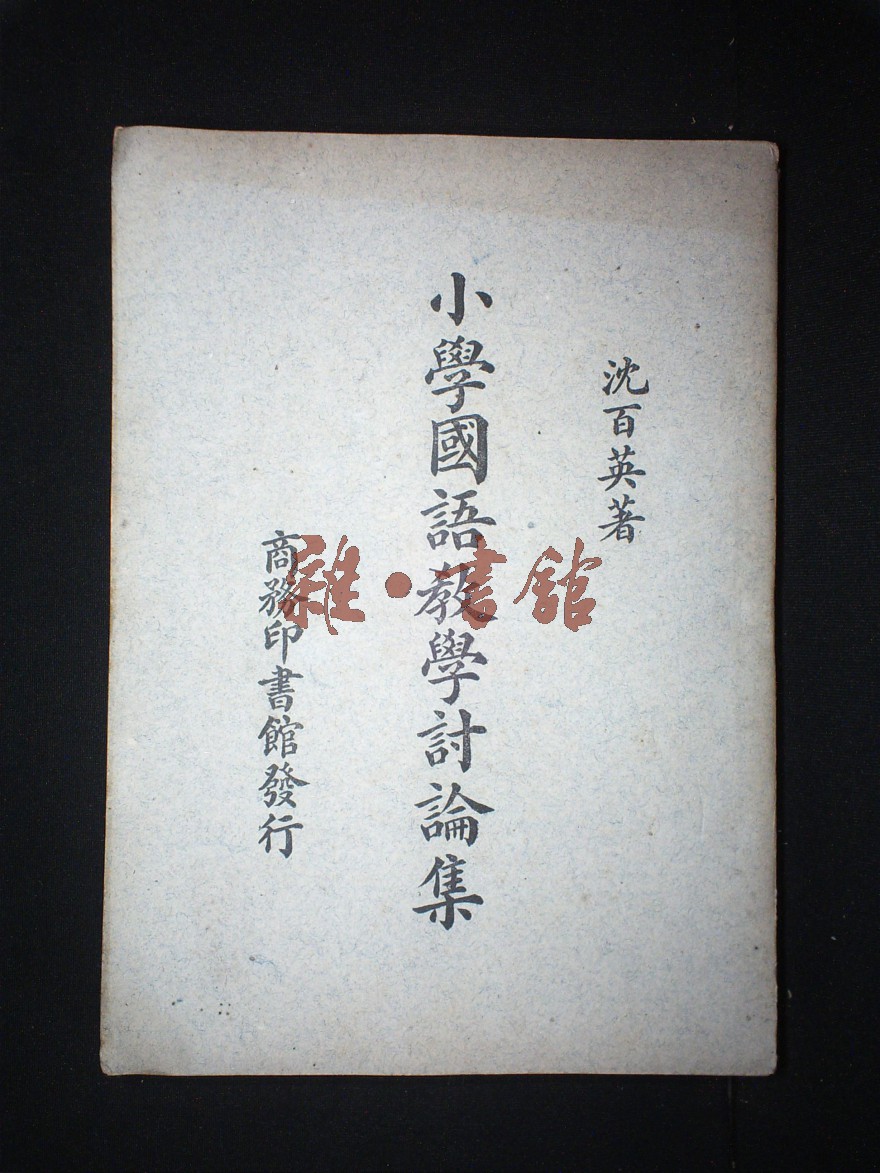 沈百英著
小學國語教學討論集
商務印書館發行
雜·書館